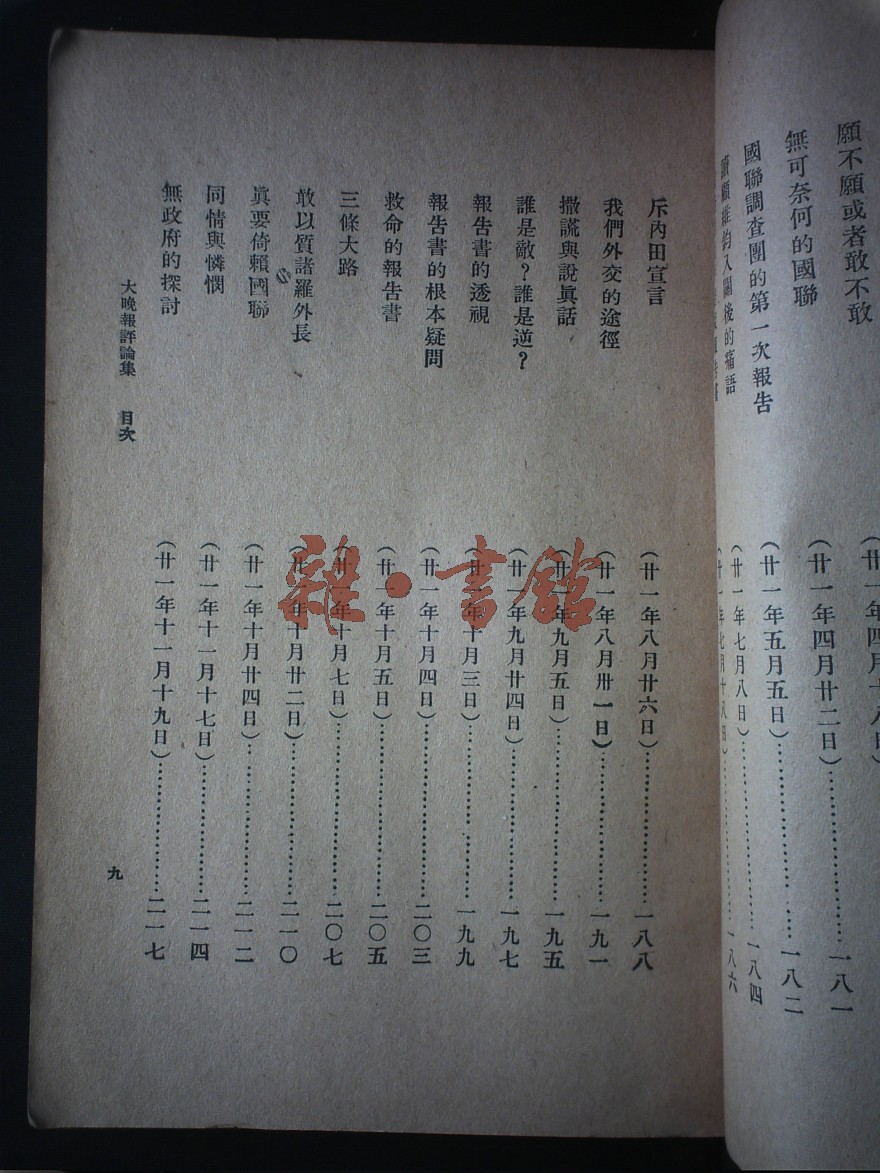 願不願或者敢不敢
無可奈何的國聯(廿一年四月廿二日)……一八一
國聯調查團的第一次報告(廿一年五月五日)……一八二
讀顧維鈞入關後的痛語(廿一年七月八日)……一八四
(廿一年七月十八日)……一八六
斥內田宣言(廿一年八月廿六日)……一八八
我們外交的途徑(廿一年八月卅一日)……一九一
撒謊與說眞話(廿一年九月五日)……一九五
誰是敵?誰是逆?(廿一年九月廿四日)……一九七
報告書的透視(廿一年十月三日)……一九九
報告書的根本疑問(廿一年十月四日)……二〇三
救命的報告書(廿一年十月五日)……二〇五
三條大路(廿一年十月七日)……二〇七
敢以質諸羅外長(廿一年十月廿二日)……二一〇
眞要倚賴國聯(廿一年十月廿四日)……二一二
同情與憐憫(廿一年十一月十七日)……二一四
無政府的探討(廿一年十一月十九日)……二一七
大晚報評論集 目次
九
雜·書館